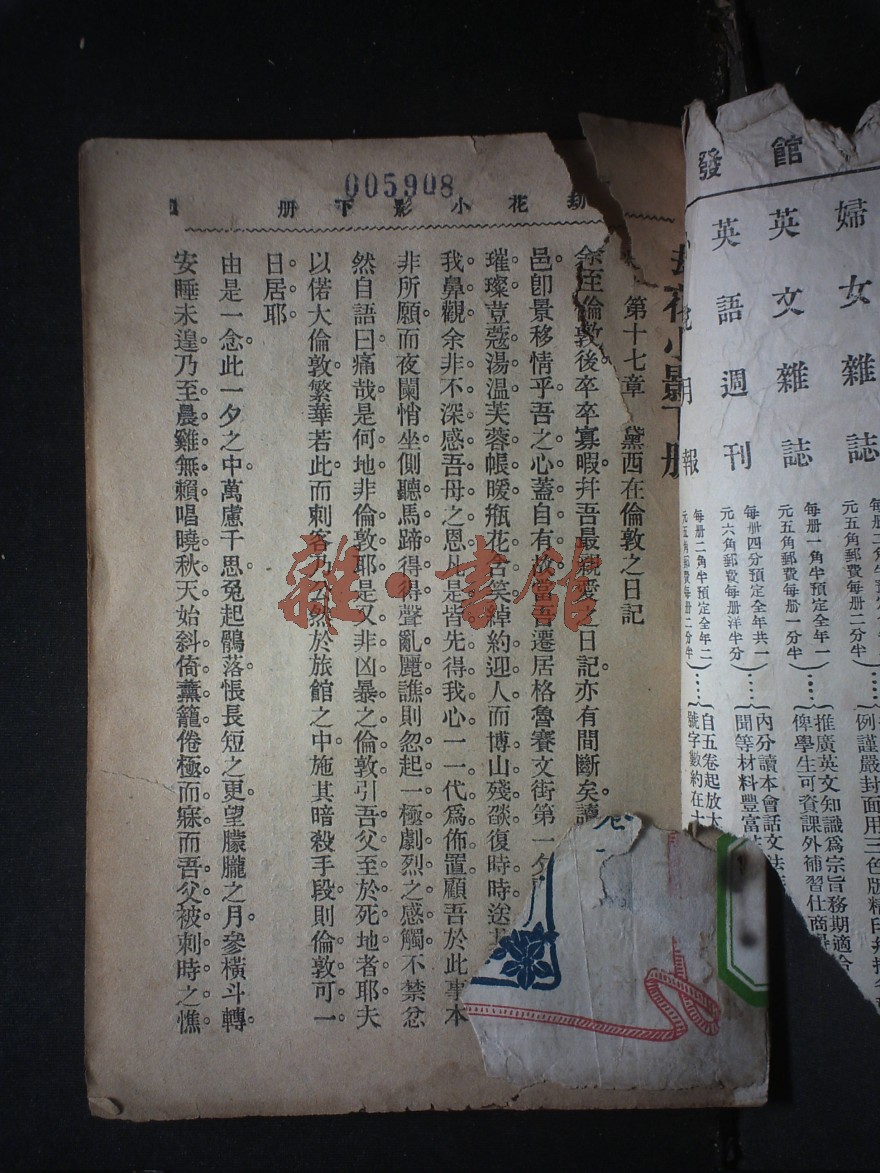 005908
劫花小影下册
劫花小影下册
第十七章 黛西在倫敦之日記
余至倫敦後。卒卒寡暇。幷吾最親愛之日記。亦有間斷矣。讀
邑。卽景移情乎。吾之心蓋自有故。當吾遷居格魯賽文街第一夕
璀璨。荳蔻湯温。芙蓉帳暖。瓶花含笑。綽約迎人。而博山殘燄。復時時送
我鼻觀。余非不深感吾母之恩。凡是皆先得我心。一一代爲佈置。顧吾於此事。本
非所願。而夜闌悄坐。側聽馬蹄得得。聲亂麗譙。則忽起一極劇烈之感觸。不禁忿
然自語曰。痛哉。是何地。非倫敦耶。是又非凶暴之倫敦。引吾父至於死地者耶。夫
以偌大倫敦。繁華若此。而刺客乃公然於旅館之中。施其暗殺手段。則倫敦可一
日居耶。
由是一念。此一夕之中。萬慮千思。兔起鶻落。悵長短之更。望朦朧之月。參橫斗轉。
安睡未遑。乃至晨雞無賴。唱曉秋天。始斜倚薰籠。倦極而寐。而吾父被刺時之憔
雜·書館
館發
婦女雜誌
英文雜誌
每册一角半預定全年一
元五角郵費每册一分半
推廣英文知識爲宗旨務期適合
俾學生可資課外補習仕商
英語週刊
每册四分預定全年共一
元六角郵費每册洋半分
內分讀本會話文法
聞等材料豐富
月報
每册二角半預定全年二
元五角郵費每册二分半
自五卷起放大
號字數約在十
元五角郵費每册二分半
例謹嚴封面用三色版精印